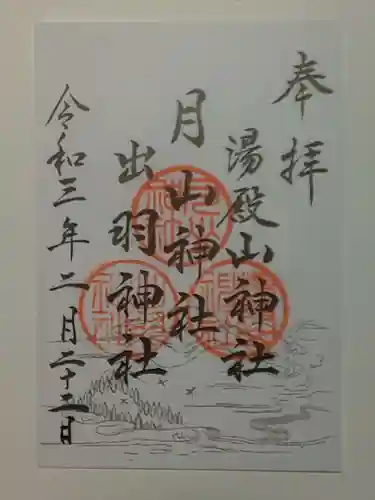 奉拝
湯殿山神社
月山神社
出羽神社
令和三年二月二十二日